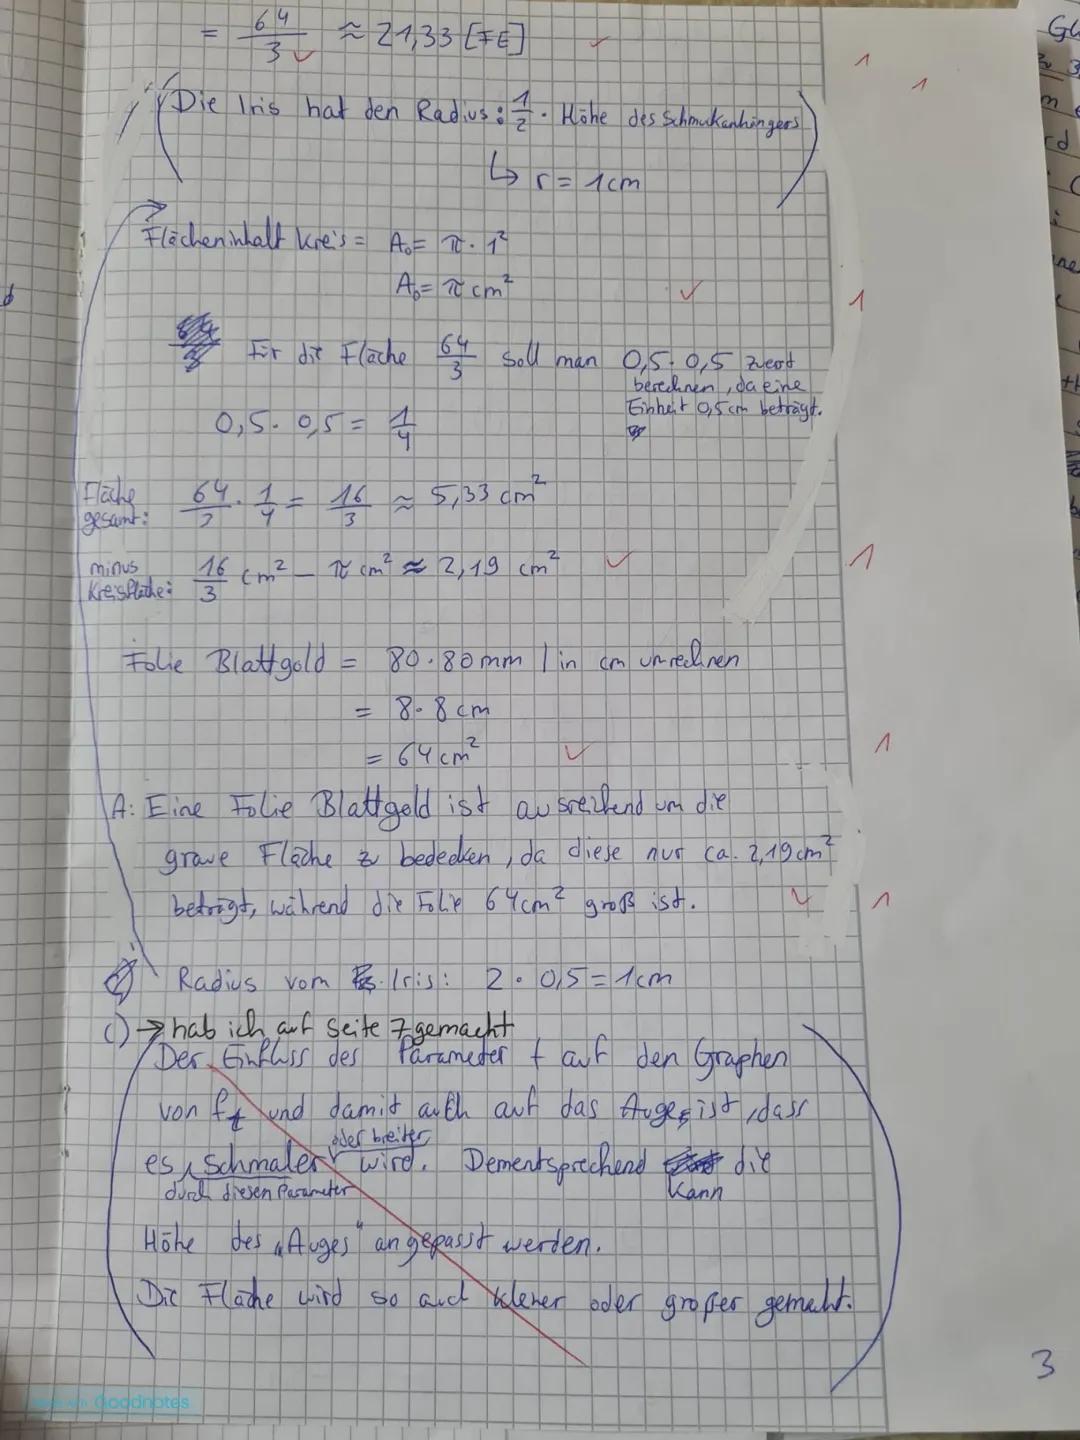 = 64/3 ≈ 21,33 [FE]
Die Iris hat den Radius: 1/2 · Höhe des Schmukanhängers
↳ r = 1cm
Flächeninhalt Kreis = A₀ = π · 1²
A₀ = π cm²
Für die Fläche 64/3 soll man 0,5 · 0,5 zuerst
berechnen, da eine
Einheit 0,5 cm beträgt.
0,5 · 0,5 = 1/4
Fläche
gesamt: 64/3 · 1/4 = 16/3 ≈ 5,33 cm²
minus
Kreisfläche: 16/3 cm² – π cm² ≈ 2,19 cm²
Folie Blattgold = 80 · 80 mm | in cm umrechnen
= 8 · 8 cm
= 64 cm²
A: Eine Folie Blattgold ist ausreihend um die
graue Fläche z bedecken, da diese nur ca. 2,19 cm²
beträgt, während die Folie 64 cm² groß ist.
Radius vom Iris: 2 · 0,5 = 1cm
c) → hab ich auf Seite 7 gemacht
Der Einfluss des Parameter t auf den Graphen
von fₜ und damit auch auf das Auge ist, dass
oder breiter
es schmaler wird. Dementsprechend die
durch diesen Parameter kann
Höhe des „Auges" angepasst werden.
Die Fläche wird so auch klener oder großer gemacht.
3
Goodnotes